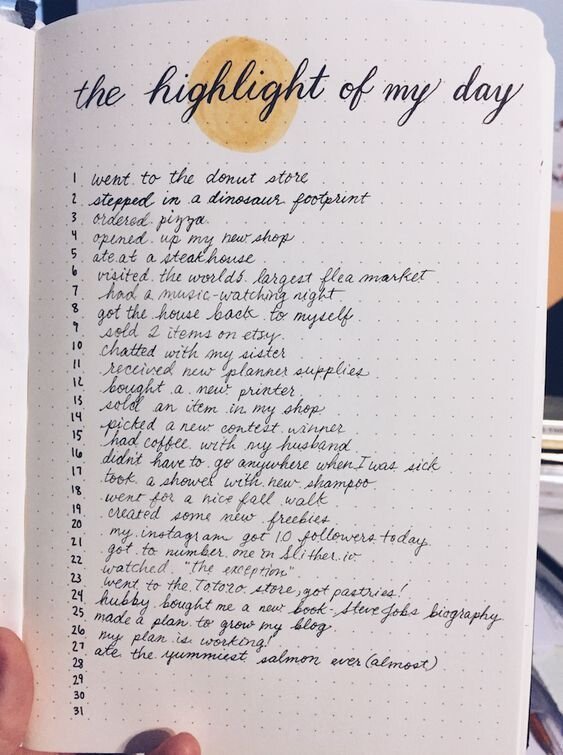 the highlight of my day
1 went to the donut store
2 stepped in a dinosaur footprint
3 ordered pizza
4 opened up my new shop
5 ate at a steakhouse
6 visited the worlds largest flea market
7 had a music-watching night
8 got the house back to myself
9 sold 2 items on etsy
10 chatted with my sister
11 received new planner supplies
12 bought a new printer
13 sold an item in my shop
14 picked a new contest winner
15 had coffee with my husband
16 didn't have to go anywhere when I was sick
17 took a shower with new shampoo
18 went for a nice fall walk
19 created some new freebies
20 my instagram got 10 followers today
21 got to number one in Slither.io
22 watched "the exception"
23 went to the Totoro store, got pastries!
24 hubby bought me a new book - Steve Jobs biography
25 made a plan to grow my blog
26 my plan is working!
27 ate the yummiest salmon ever (almost)
28
29
30
31